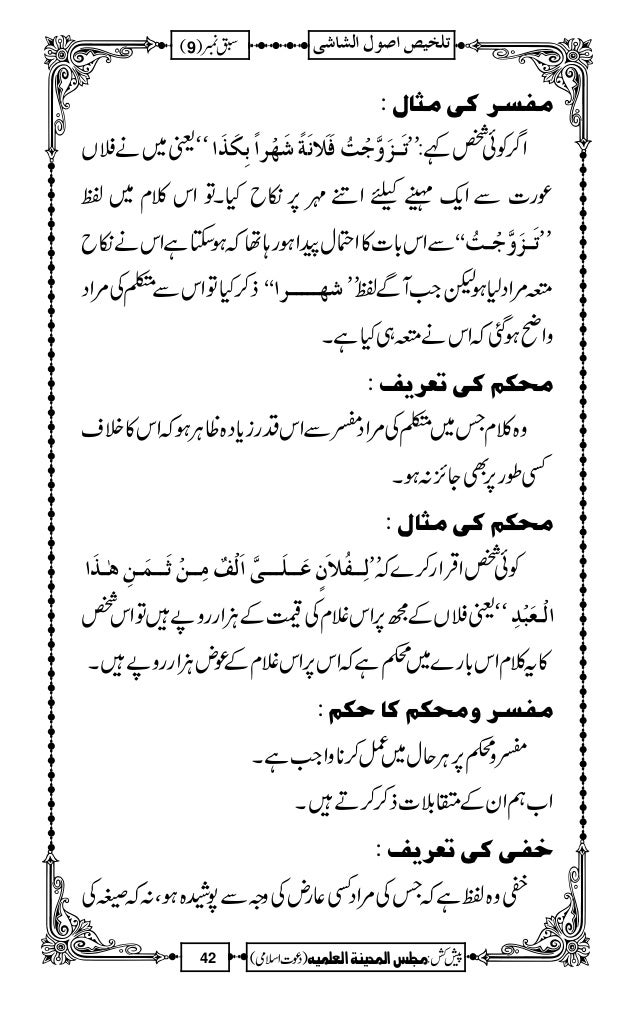 تلخیص اصول الشاشی
سبق نمبر (9)
مفسر کی مثال :
اگر کوئی شخص کہے:’’تَزَوَّجْتُ فَلَانَةً شَهْراً بِكَذَا ‘‘یعنی میں نے فلاں
عورت سے ایک مہینے کیلئے اتنے مہر پر نکاح کیا۔تو اس کلام میں لفظ
’’تَزَوَّجْتُ‘‘سے اس بات کا احتمال پیدا ہورہا تھا کہ ہوسکتا ہے اس نے نکاح
متعہ مراد لیا ہو لیکن جب آگے لفظ’’ شهرا‘‘ ذکر کیا تو اس سے متکلم کی مراد
واضح ہوگئی کہ اس نے متعہ ہی کیا ہے۔
محکم کی تعریف :
وہ کلام جس میں متکلم کی مراد مفسر سے اس قدر زیادہ ظاہر ہو کہ اس کا خلاف
کسی طور پر بھی جائز نہ ہو۔
محکم کی مثال :
کوئی شخص اقرار کرے کہ’’لِفُلَانٍ عَلَىَّ اَلْفٌ مِنْ ثَمَنِ هٰذَا
الْعَبْدِ ‘‘یعنی فلاں کے مجھ پر اس غلام کی قیمت کے ہزار روپے ہیں تو اس شخص
کا یہ کلام اس بارے میں محکم ہے کہ اس پر اس غلام کے عوض ہزار روپے ہیں۔
مفسر ومحکم کا حکم :
مفسر ومحکم پر ہر حال میں عمل کرنا واجب ہے۔
اب ہم ان کے متقابلات ذکر کرتے ہیں۔
خفی کی تعریف :
خفی وہ لفظ ہے کہ جس کی مراد کسی عارض کی وجہ سے پوشیدہ ہو، نہ کہ صیغہ کی
پیش کش: مجلس المدینة العلمیه (دعوت اسلامی)
42